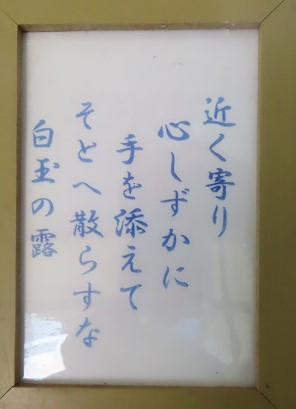 近く寄り
心しずかに
手を添えて
そとへ散らすな
白玉の露